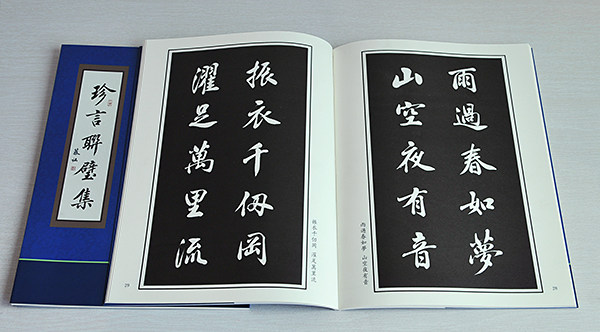 珍言聯璧集
振衣千仞岡
濯足萬里流
振衣千仞岡 濯足萬里流
28
雨過春如夢
山空夜有音
雨過春如夢 山空夜有音
29